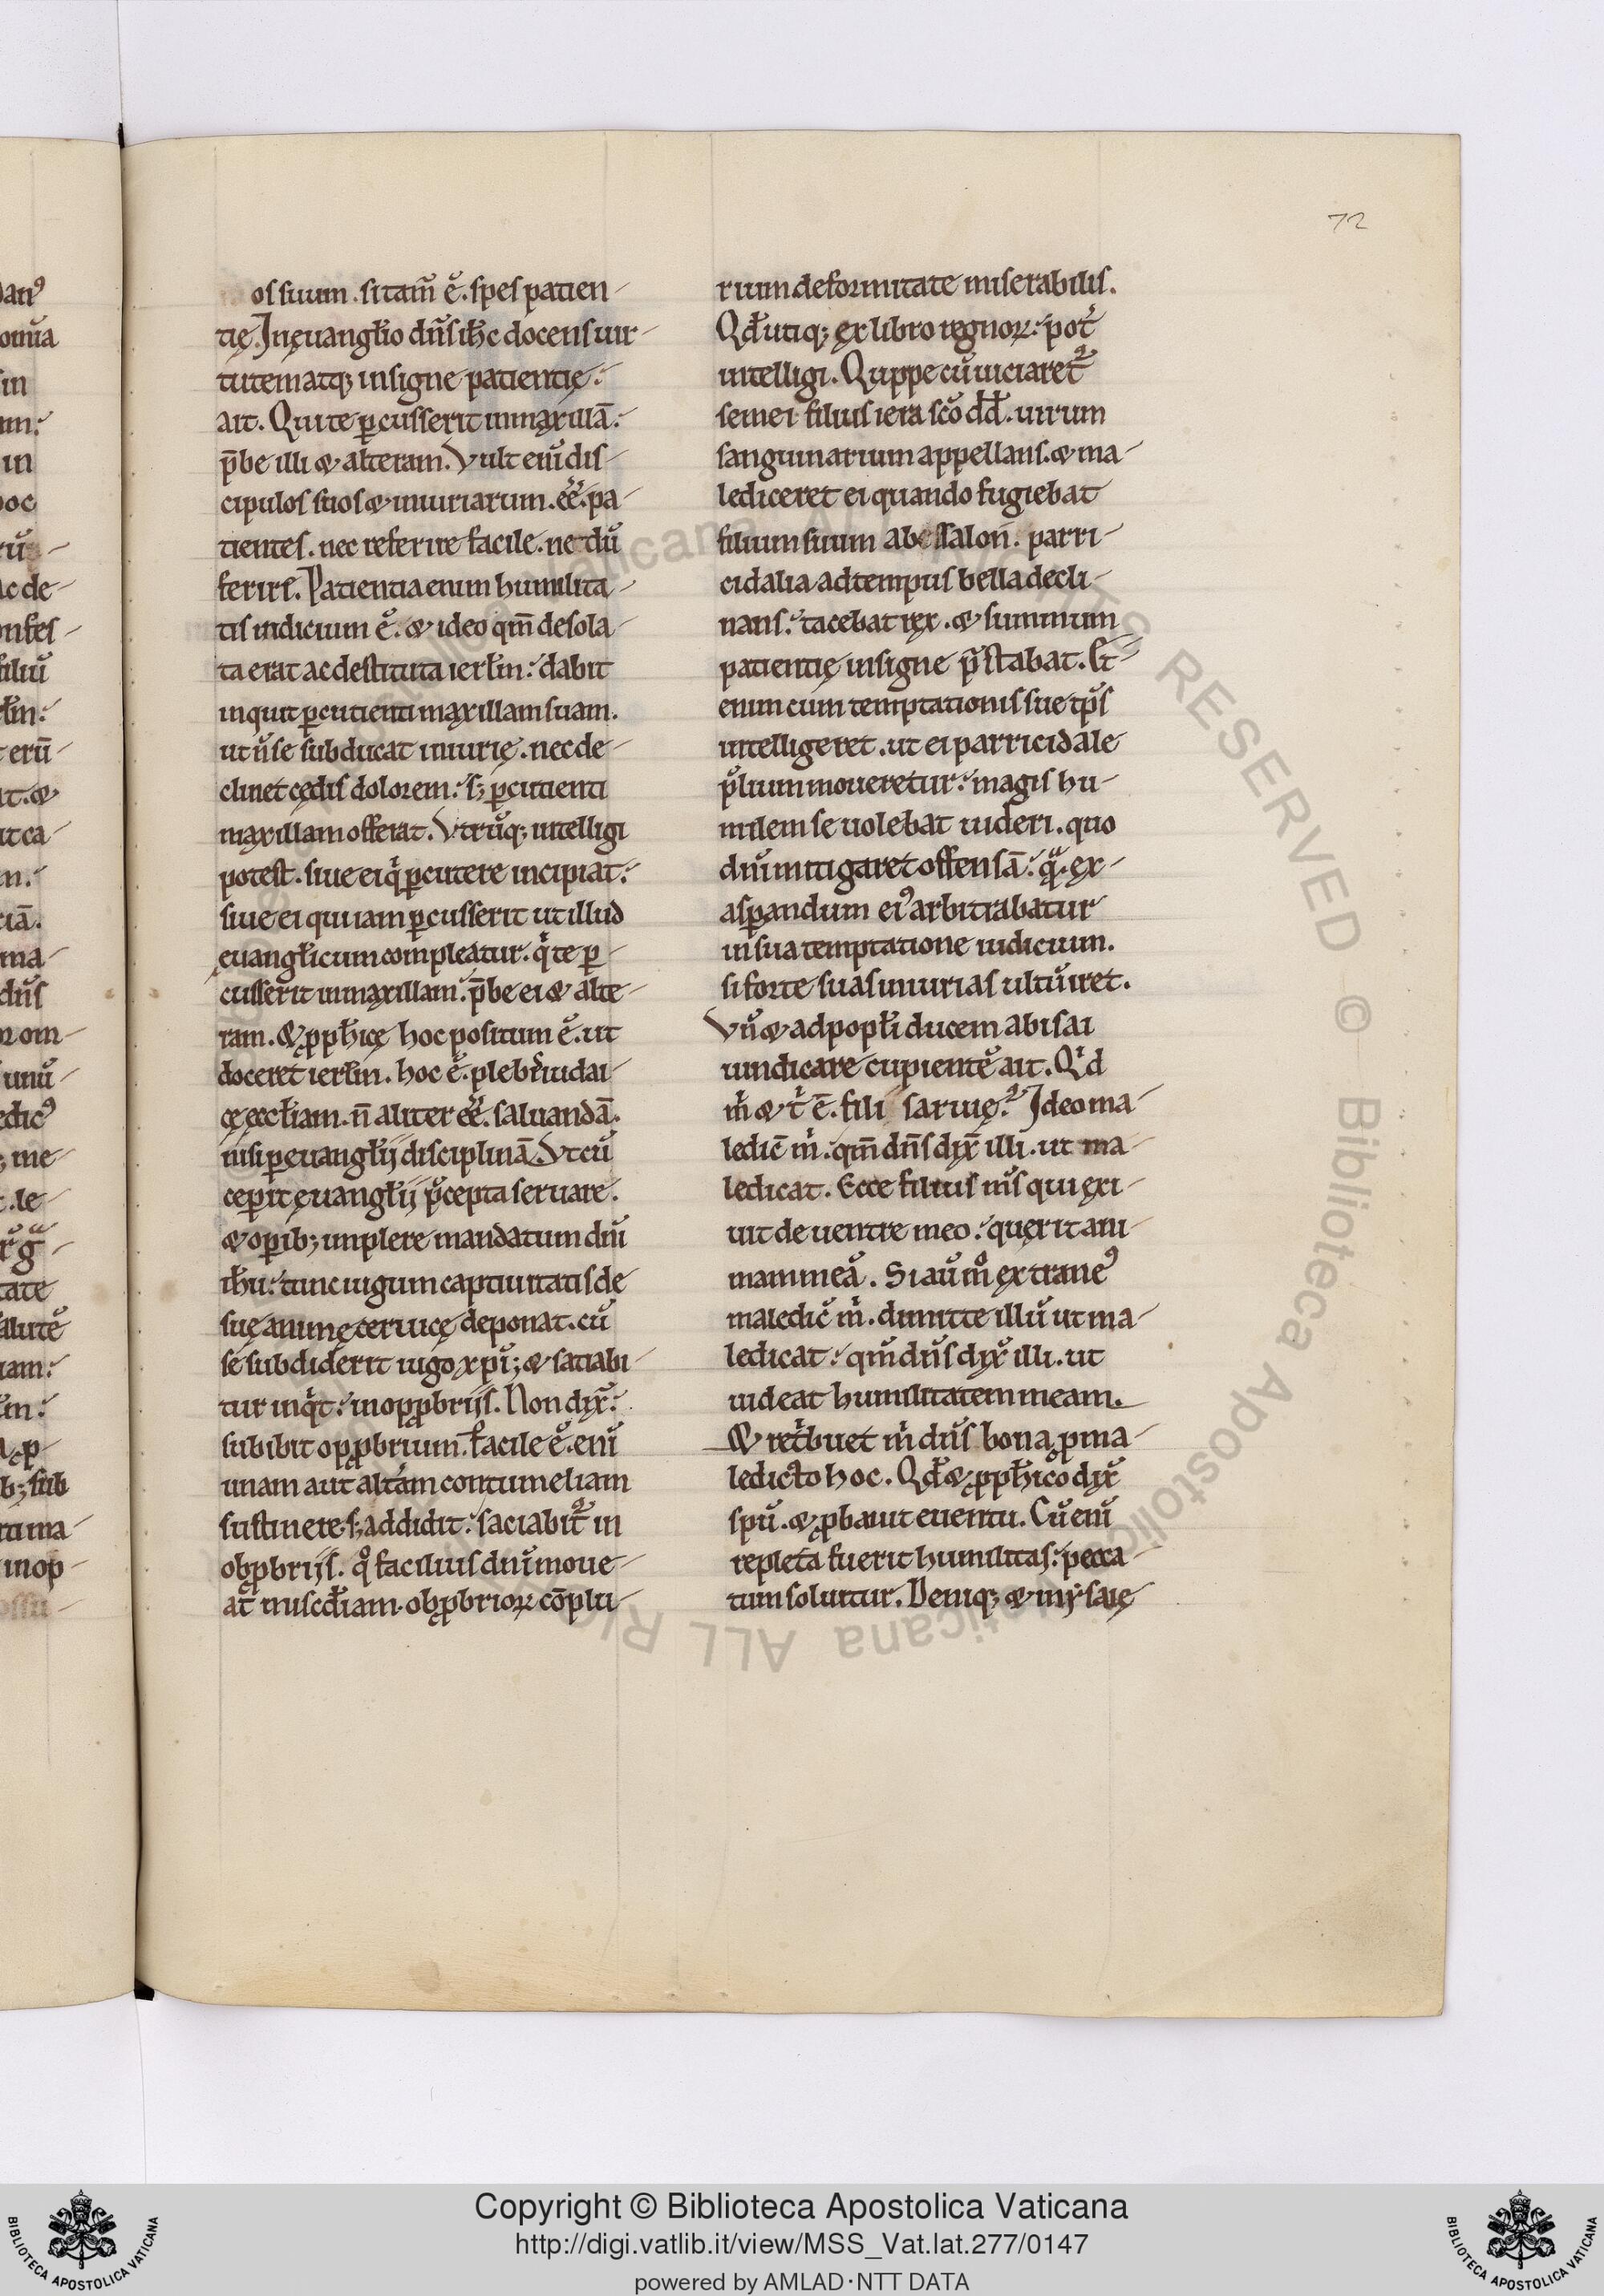 72
os suum. si tam̄ ē. spes patien-
tię. In euangł̇io dn̄s ih̄c docens uir-
tutem atq; insigne patientię:
ait. Qui te ꝑcusserit in maxillā:
p̄be illi & alteram. Vult enī dis-
cipulos suos & iniuriarum. eē. pa-
tientes. nec referire facile. ne dū
ferire. Patientia enim humilita-
tis indicium ē. & ideo qm̄ desola-
ta erat ac destituta ierłm: dabit
inquit ꝑcutienti maxillam suam.
ut n̄ se subducat iniurię. nec de-
clinet cędis dolorem: s; ꝑcutienti
maxillam offerat. Vtrūq; intelligi
potest. siue ei qͥ ꝑcutere incipiat:
siue ei qui iam ꝑcusserit ut illud
euangł̇icum compleatur. qͥ te ꝑ-
cusserit in maxillam: p̄be ei & alte-
ram. & ꝓpħicę hoc positum ē. ut
doceret ierłm. hoc ē. plebē iudai-
cę eccłiam. n̄ aliter eē. saluandā.
nisi ꝑ euangłij disciplinā. Vt cū
ceperit euangłij p̄cepta seruare.
& oꝑib; implere mandatum dn̄i
ih̄u: tunc iugum captiuitatis de
suę animę ceruicę deponat. cū
se subdiderit iugo xp̄i; & satiabi-
tur inqͥt: in opꝓbrijs. Non dix̄:
subibit opꝓbrium. facile ē. enī
unam aut altam contumeliam
sustinere. s; addidit: saciabit̄ in
obꝓbrijs. qͦ facilius dn̄m moue-
at̄ misc̄diam. obꝓbrioꝝ cōplu-
rium deformitate miserabilis.
Qd̄ utiq; ex libro regnoꝝ: pot̄
intelligi. Quippe cū uiciaret̄
semei filius iera sc̄o dd̄. uirum
sanguinarium appellans. & ma-
lediceret ei quando fugiebat
filium suum abessalon. parri-
cidalia ad tempus bella decli-
nans: tacebat rex. & summum
patientię insigne p̄stabat. Et-
enim cum temptationis sue tp̄s
intelligeret. ut ei parricidale
p̄lium moueretur: magis hu-
milem se uolebat uideri. quo
dn̄m mitigaret offensā: qͣ. ex-
asꝑandum ei᾽ arbitrabatur
in sua temptatione iudicium.
si forte suas iniurias ultū iret.
Vn̄ & ad popłi ducem abisai
uindicare cupientē ait. Qͥd
m̄ & t̄ ē. fili saruię? Ideo ma-
ledic̄ m̄. qm̄ dn̄s dix̄ illi. ut ma-
ledicat. Ecce filius m̄s qui exi-
uit de uentre meo: querit ani-
mam meā. Si aū m̊ extrane᾽
maledic̄ m̄. dimitte illū ut ma-
ledicat: qm̄ dn̄s dix̄ illi. ut
uideat humilitatem meam.
& ret̄buet m̄ dn̄s bona ꝓ ma-
ledicto hoc. Qd̄ & ꝓpħico dix̄
spū. & ꝓbauit euentu. Cū enī
repleta fuerit humilitas: pecca-
tum soluitur. Deniq; & in ysaię
Copyright © Biblioteca Apostolica Vaticana
http://digi.vatlib.it/view/MSS_Vat.lat.277/0147
powered by AMLAD·NTT DATA